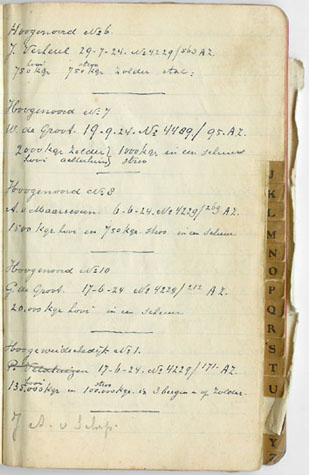 Hoogenoord No 6
J. Verheul 29-7-24. No 4229/563 A.Z.
hooi stroo
750 kgr 750 kgr Zolder stal:
Hoogenoord No 7
W. de Groot. 19-9-24. No 4489/95. A.Z.
2000 kgr Zolder 1000 kgr in een schuur
hooi stroo
Hoogenoord No 8
A. v Maarseveen 6-6-24. No 4229/269 A.Z.
1500 kgr hooi en 750 kgr. stroo in een schuur
Hoogenoord No 10
G. de Groot. 17-6-24 No 4229/212 A.Z.
20.000 kgr hooi in een schuur
Hoogeweidschedijk No 1.
17-6-24 No 4229/171. A.Z.
hooi stroo
135.000 kgr en 100.000 kgr. in 3 bergen op Zolder.
J A. v Schip.
J
K
L
M
N
O
P
Q
R
S
T
U
Y
Z